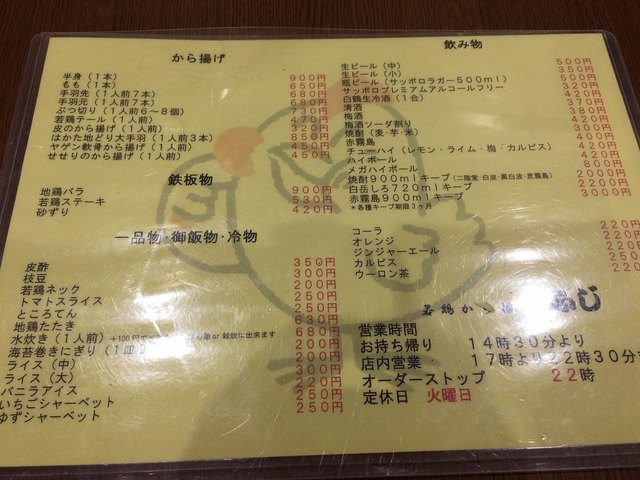 から揚げ
半身（1本） 900円
もも（1本） 650円
手羽先（1人前7本） 680円
手羽元（1人前7本） 680円
ぶつ切り（1人前6～8個） 730円
若鶏テール（1人前） 450円
皮のから揚げ（1人前） 320円
はかた地どり大手羽（1人前3本） 850円
ヤゲン軟骨から揚げ（1人前） 450円
せせりのから揚げ（1人前） 450円
鉄板物
地鶏バラ 900円
若鶏ステーキ 530円
砂ずり 420円
一品物・御飯物・冷物
皮酢 350円
枝豆 300円
若鶏ネック 200円
トマトスライス 250円
ところてん 250円
地鶏たたき 630円
水炊き（1人前） +100円で or 雑炊に出来ます 680円
海苔巻きにぎり（1皿） 200円
ライス（中） 200円
ライス（大） 300円
バニラアイス 220円
いちごシャーベット 250円
ゆずシャーベット 250円
飲み物
生ビール（中） 500円
生ビール（小） 350円
瓶ビール（サッポロラガー500ml） 500円
サッポロプレミアムアルコールフリー 320円
白鶴生冷酒（1合） 420円
清酒 370円
梅酒 380円
梅酒ソーダ割り
焼酎（麦・芋・米） 340円
赤霧島 400円
チューハイ（レモン・ライム・梅・カルピス） 420円
ハイボール
メガハイボール 800円
焼酎900mlキープ（二階堂・白波・黒白波・黒霧島） 2000円
白岳しろ720mlキープ 2000円
赤霧島900mlキープ 3000円
＊各種キープ期限3ヶ月
コーラ 220円
オレンジ 220円
ジンジャーエール
カルピス 220
ウーロン茶 220
若鶏か
営業時間
お持ち帰り 14時30分より
店内営業 17時より22時30分
オーダーストップ 22時
定休日 火曜日